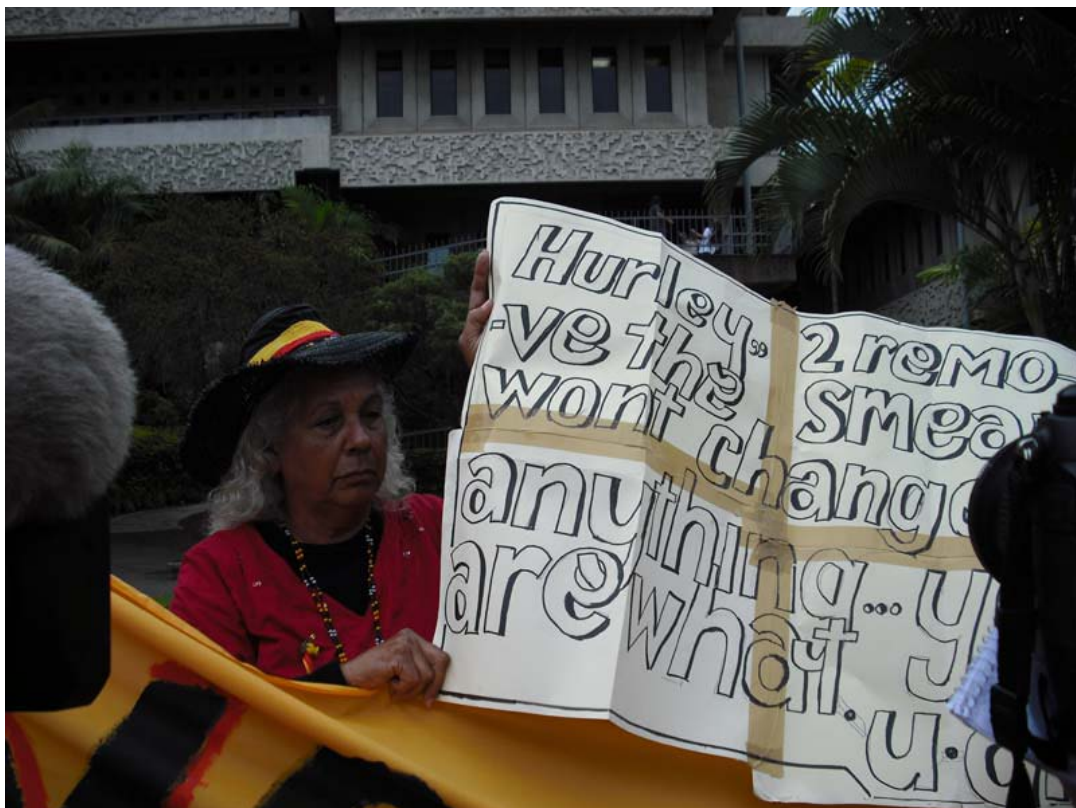 Hurley.. 2 remo
-ve the smear
wont change
anything... y
are what u.